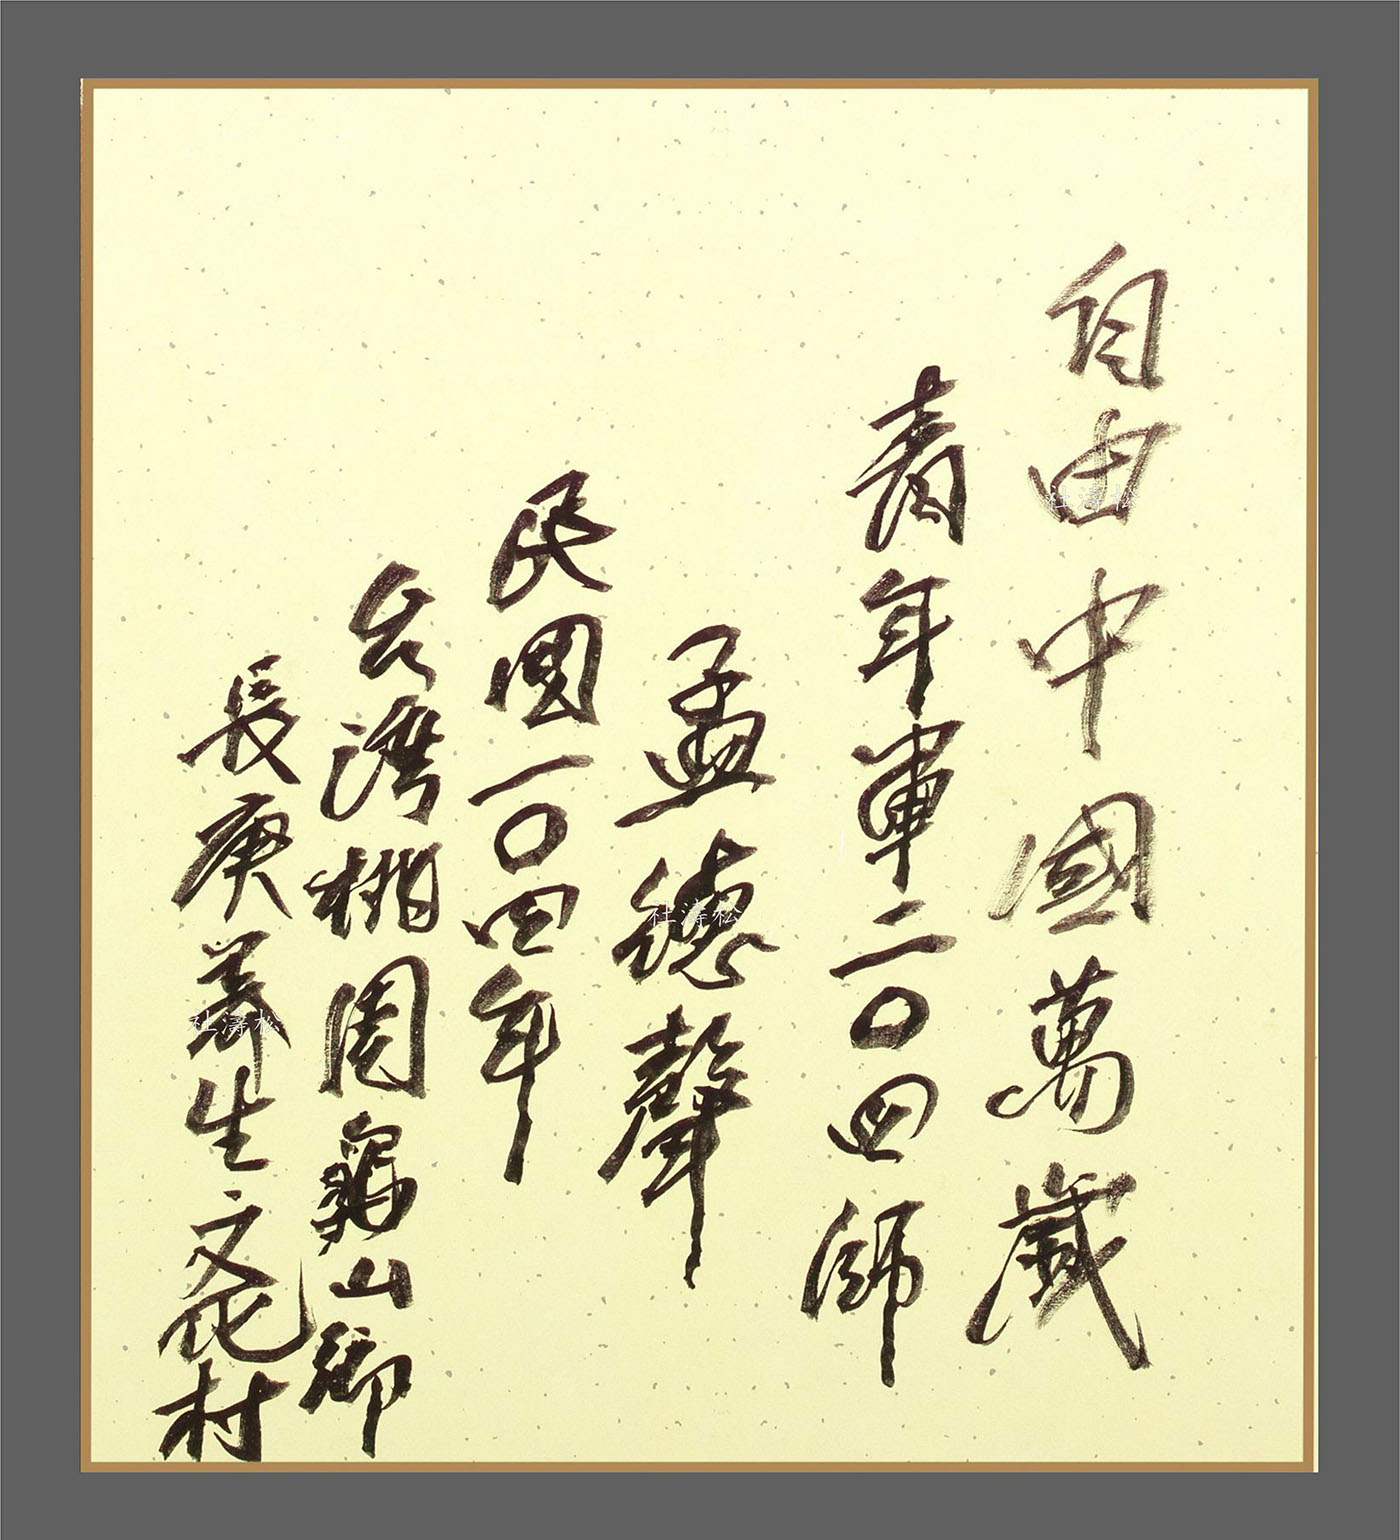 自由中國萬歲
青年軍二〇四師
孟德聲
民國一〇四年
台灣桃園龜山鄉
長庚養生文化村
杜涛松
杜涛松
杜涛松